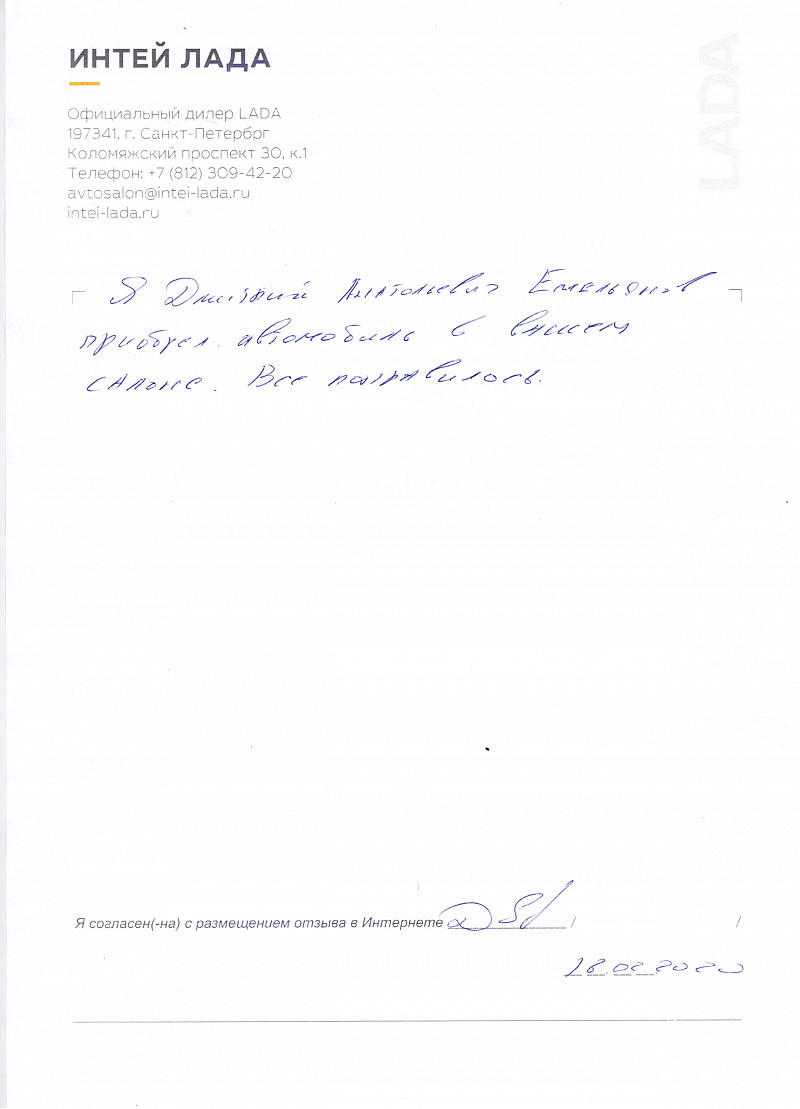 ИНТЕЙ ЛАДА
LADA
Официальный дилер LADA
197341, г. Санкт-Петербрг
Коломяжский проспект 30, к.1
Телефон: +7 (812) 309-42-20
avtosalon@intei-lada.ru
intei-lada.ru
Я Дмитрий Анатольевич Емельянов
приобрел автомобиль в вашем
салоне. Все понравилось.
Я согласен(-на) с размещением отзыва в Интернете / /
18.02.2020